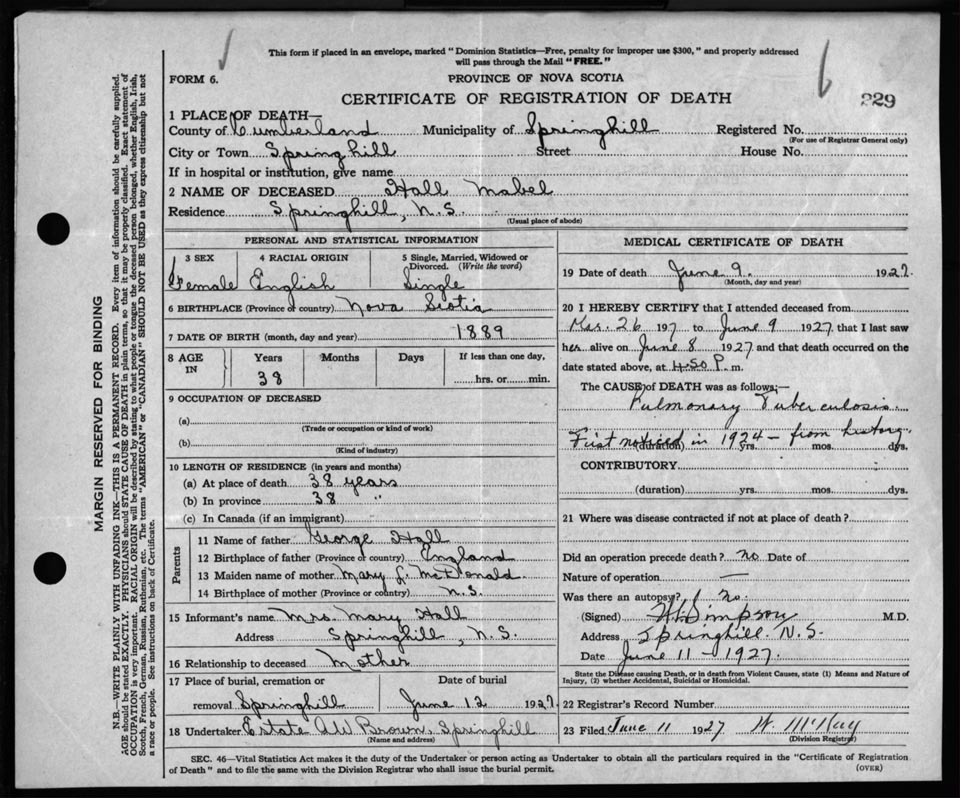 This form if placed in an envelope, marked "Dominion Statistics—Free, penalty for improper use $300," and properly addressed
will pass through the Mail "FREE."
FORM 6.
PROVINCE OF NOVA SCOTIA
CERTIFICATE OF REGISTRATION OF DEATH
229
1 PLACE OF DEATH—
County of Cumberland Municipality of Springhill Registered No.
(For use of Registrar General only)
City or Town Spring hill Street House No.
If in hospital or institution, give name
2 NAME OF DECEASED Hall Mabel
Residence Springhill, N.S.
(Usual place of abode)
PERSONAL AND STATISTICAL INFORMATION
3 SEX 4 RACIAL ORIGIN 5 Single, Married, Widowed or
Divorced. (Write the word)
Female English Single
6 BIRTHPLACE (Province or country) Nova Scotia
7 DATE OF BIRTH (month, day and year) 1889
8 AGE IN Years Months Days If less than one day,
38 hrs. or min.
9 OCCUPATION OF DECEASED
(a)
(Trade or occupation or kind of work)
(b)
(Kind of industry)
10 LENGTH OF RESIDENCE (in years and months)
(a) At place of death 38 years
(b) In province 38 "
(c) In Canada (if an immigrant)
Parents
11 Name of father George Hall
12 Birthplace of father (Province or country) England
13 Maiden name of mother Mary L. McDonald
14 Birthplace of mother (Province or country) N.S.
15 Informant's name Mrs. Mary Hall
Address Springhill, N.S.
16 Relationship to deceased Mother
17 Place of burial, cremation or Date of burial
removal Springhill June 12 1927
18 Undertaker Estate AW Brown, Springhill
(Name and address)
MEDICAL CERTIFICATE OF DEATH
19 Date of death June 9. 1927
(Month, day and year)
20 I HEREBY CERTIFY that I attended deceased from
Mar. 26 197 to June 9 1927 that I last saw
her alive on June 8 1927 and that death occurred on the
date stated above, at 4.50 P. m.
The CAUSE of DEATH was as follows;—
Pulmonary Tuberculosis.
First noticed in 1924 — from history.
(duration) yrs. mos. dys.
CONTRIBUTORY
(duration) yrs. mos. dys.
21 Where was disease contracted if not at place of death?
Did an operation precede death? no Date of
Nature of operation —
Was there an autopsy? no.
(Signed) Simpson M.D.
Address Springhill. N.S.
Date June 11 — 1927.
State the Disease causing Death, or in death from Violent Causes, state (1) Means and Nature of
Injury, (2) whether Accidental, Suicidal or Homicidal.
22 Registrar's Record Number
23 Filed June 11 1927 W. McKay
(Division Registrar)
SEC. 46—Vital Statistics Act makes it the duty of the Undertaker or person acting as Undertaker to obtain all the particulars required in the "Certificate of Registration
of Death" and to file the same with the Division Registrar who shall issue the burial permit.
(OVER)
MARGIN RESERVED FOR BINDING
N.B.—WRITE PLAINLY WITH UNFADING INK—THIS IS A PERMANENT RECORD. Every item of information should be carefully supplied.
AGE should be stated EXACTLY. PHYSICIANS should STATE CAUSE OF DEATH in plain terms, so that it may be properly classified. Exact statement of
OCCUPATION is very important. RACIAL ORIGIN will be described by stating to what people or tongue the deceased person belonged, whether English, Irish,
Scotch, French, German, Russian, Ruthenian, etc. The terms "AMERICAN" or "CANADIAN" SHOULD NOT BE USED as they express citizenship but not
a race or people. See instructions on back of Certificate.